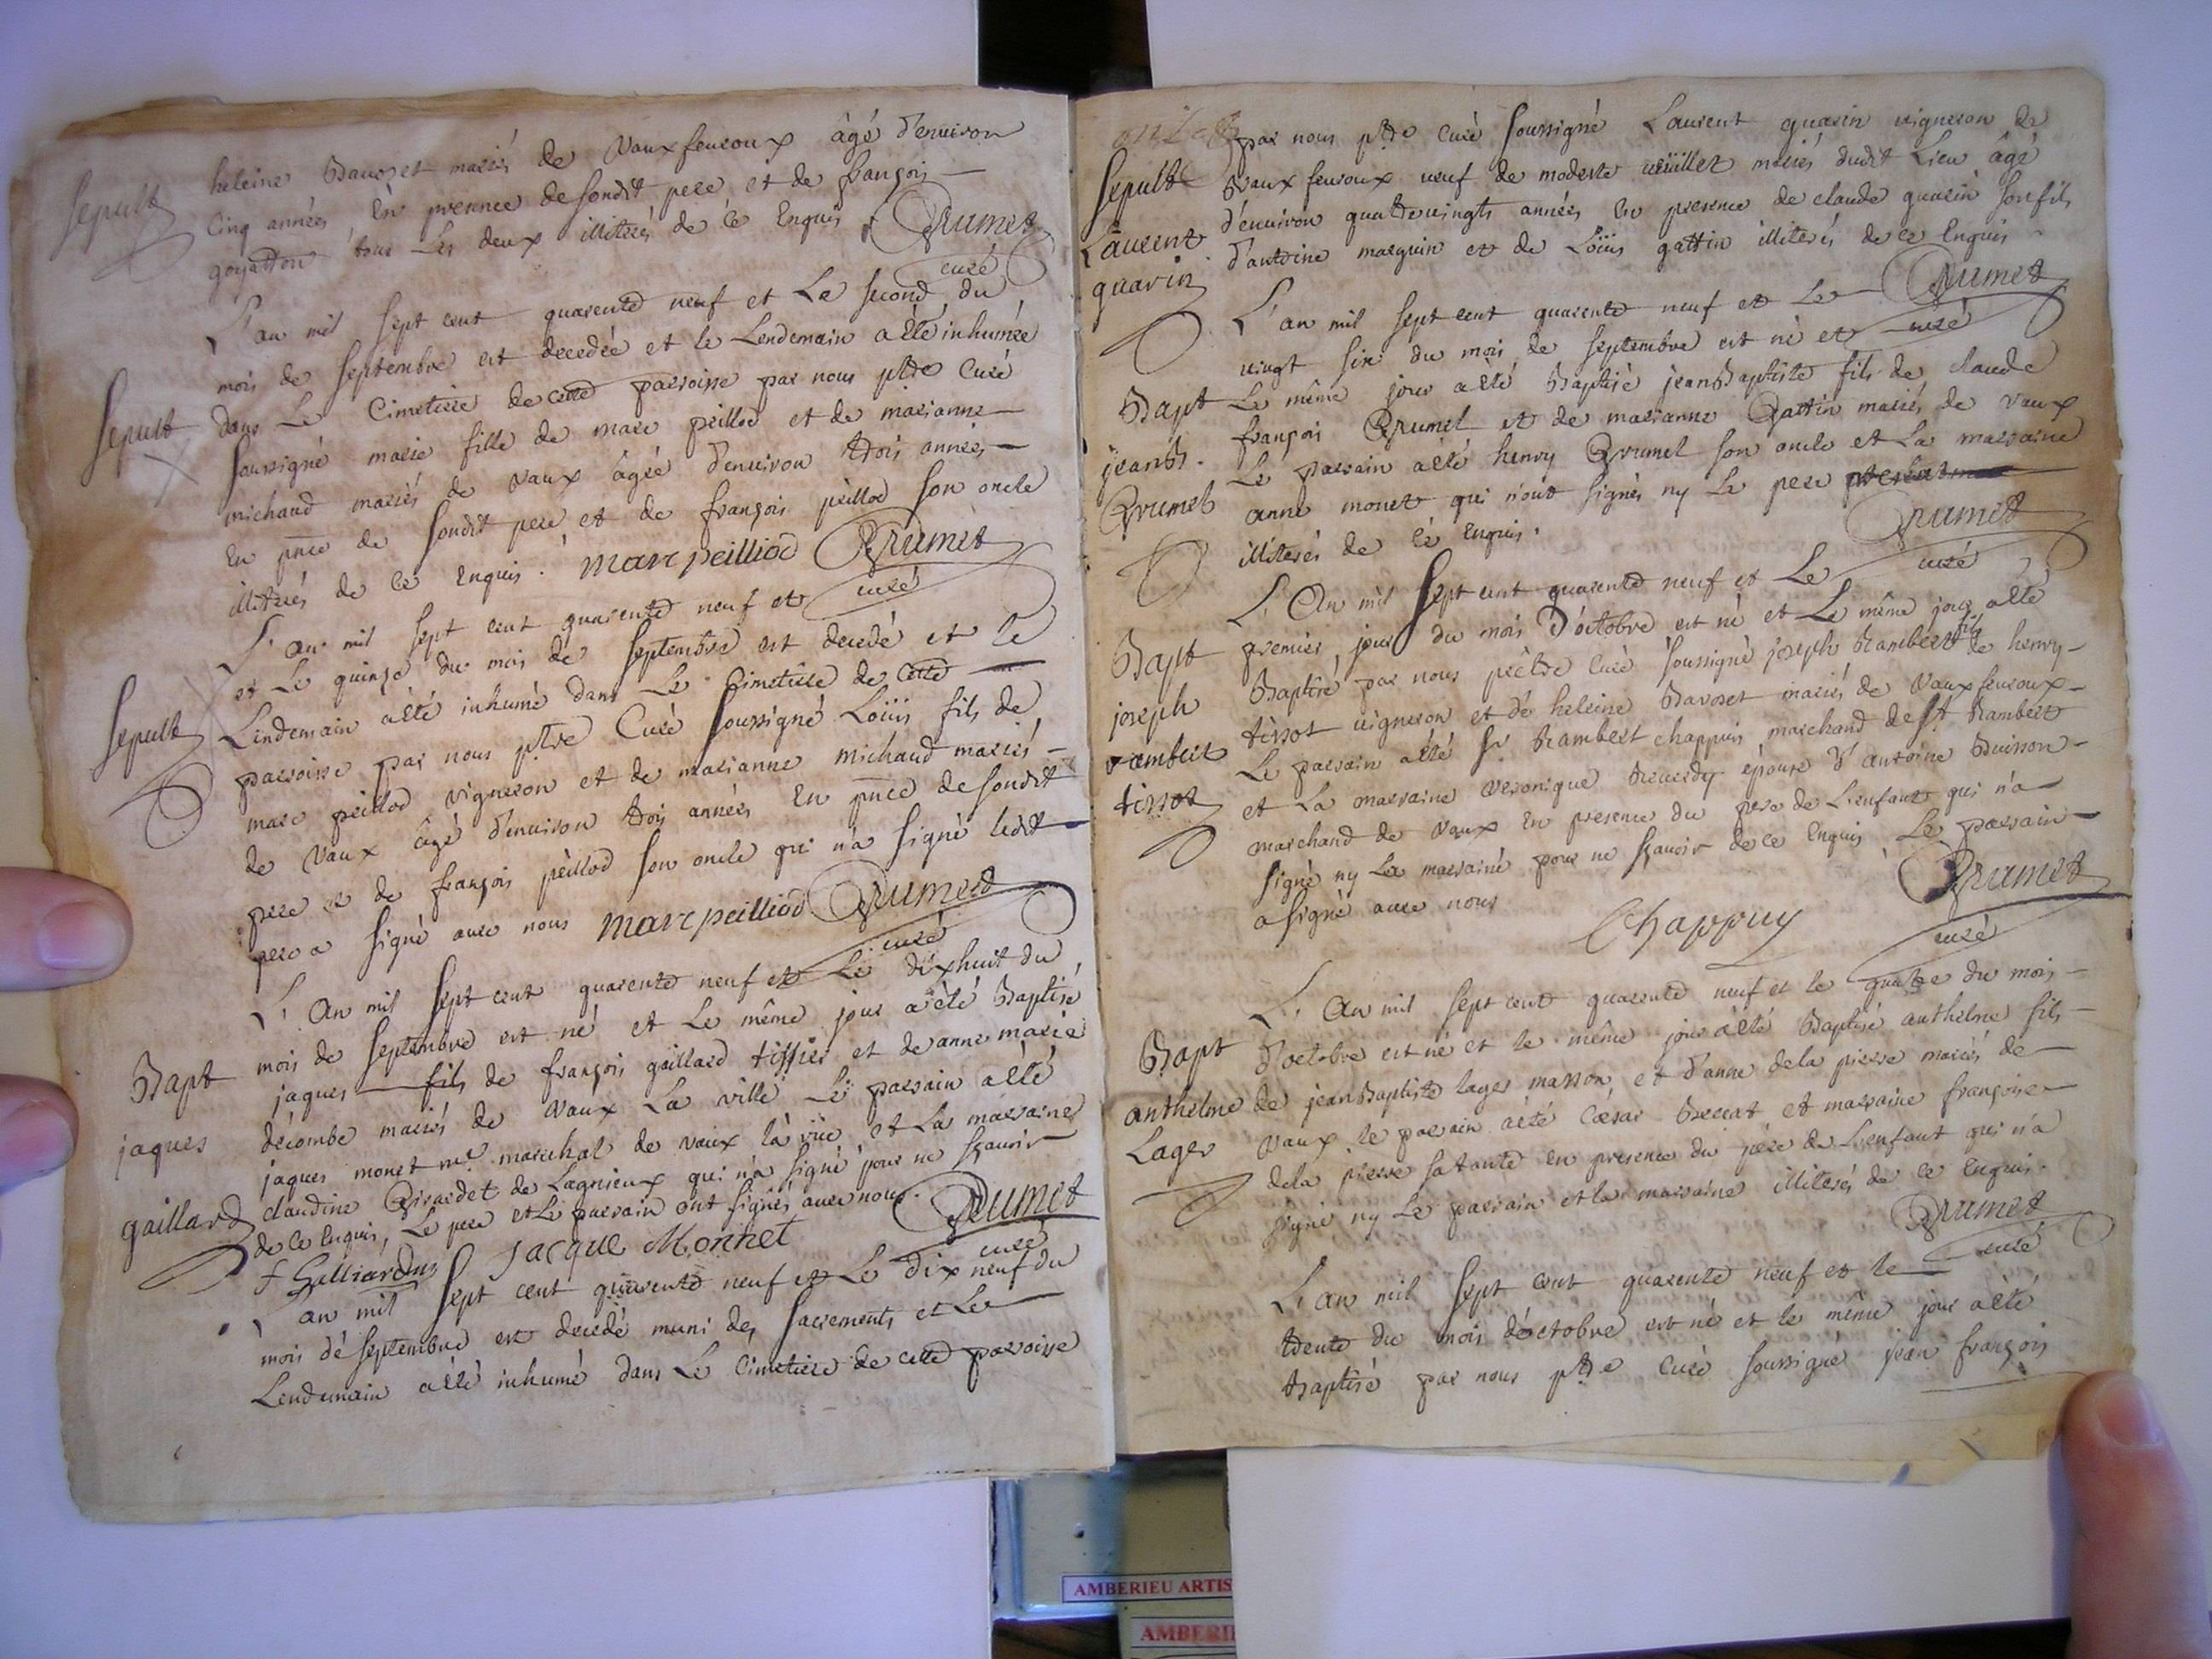 heleine Bavozet mariés de Vauxfevroux âgé d'environ
Sepult
Cinq années En presence de sondit pere et de françois
goyatton tous Les deux illiterés de ce Enquis Brumet
curé
L'an mil sept cent quarente neuf et Le second du
mois de septembre est decedée et le Lendemain a été inhumée
Sepult
dans Le Cimetiere de cette parroisse par nous ptre Curé
soussigné marie fille de marc peillod et de marianne
michaud mariés de vaux âgée d'environ trois années
En pnce de sondit pere et de françois peillod son oncle
illiterés de ce Enquis. marc peilliod Brumet
curé
L'an mil sept cent quarente neuf et
et Le quinze du mois de septembre est decedé et le
Sepult
Lendemain a été inhumé dans Le Cimetiere de cette
parroisse par nous ptre Curé soussigné Loüis fils de
marc peillod vigneron et de marianne michaud mariés
de vaux âgé d'environ trois années En pnce de sondit
pere et de françois peillod son oncle qui n'a signé ledit
pere a signé avec nous marc peilliod Brumet
curé
L'An mil sept cent quarente neuf et Le dixhuit du
Bapt
mois de septembre est né et Le même jour a été Baptisé
jaques fils de françois gaillard tissier et de anne marie
jaques
décombe mariés de vaux La ville Le parrain a été
jaques monet me marechal de vaux la ville, et La marraine
gaillard
claudine Girardet de Lagnieux qui n'a signé pour ne sçavoir
de ce Enquis, Le pere et Le parrain ont signés avec nous. Brumet
f Galliardus jacque Monnet
curé
L'an mil sept cent quarente neuf et Le dix neuf du
mois de septembre est decedé muni des sacrements et Le
Lendemain a été inhumé dans Le Cimetiere de cette parroisse
par nous ptre Curé soussigné Laurent guarin vigneron de
Sepult
Vauxfevroux veuf de modeste mariés dudit Lieu âgé
Laurent
d'environ quatrevingts années En presence de claude guarin son fils
guarin
d'antoine marguin et de Loüis gattin illiterés de ce Enquis
Brumet
curé
L'an mil sept cent quarente neuf et Le
vingt six du mois de septembre est né et
Bapt
Le même jour a été Baptisé jeanBaptiste fils de claude
jeanB.
françois Brumet et de marianne Gattin mariés de vaux
Brumet
Le parrain a été henry Brumet son oncle et La marraine
anne monet qui n'ont signés ny Le pere
illiterés de ce Enquis.
Brumet
curé
L'An mil sept cent quarente neuf et Le
Bapt
premier jour du mois D'octobre est né et Le même jour a été
joseph
Baptisé par nous prêtre Curé soussigné joseph Rambert fils de henry
rambert
tissot vigneron et de heleine Bavozet mariés de Vauxfevroux
tissot
Le parrain a été Sr Rambert chappuis marchand de St Rambert
et La marraine veronique Reverdy épouse d'antoine Buisson
marchand de vaux En presence du pere de L'enfant qui n'a
signé ny La marraine pour ne sçavoir de ce Enquis, Le parrain
a signé avec nous
Brumet
Chappuy
curé
L'An mil sept cent quarente neuf et le quatre du mois
Bapt
d'octobre est né et le même jour a été Baptisé anthelme fils
anthelme
de jeanBaptiste lager masson, et d'anne dela pierre mariés de
Lager
vaux le parrain a été Cæsar et marraine françoise
dela pierre sa tante en presence du père de L'enfant qui n'a
signé ny Le parrain et la marraine illiterés de ce Enquis.
Brumet
curé
L'an mil sept cent quarente neuf et le
trente du mois d'octobre est né et le même jour a été
Baptisé par nous ptre Curé soussigné jean françois
AMBERIEU ARTIS
AMBERIE